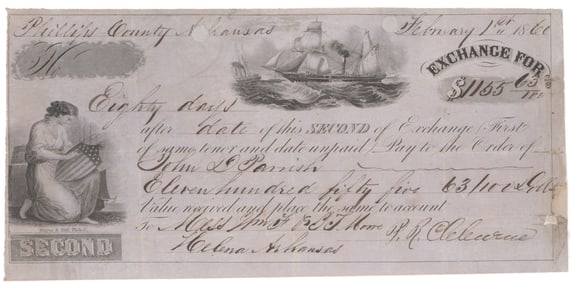 Phillips County Arkansas February 1st 1860
No
EXCHANGE FOR
$1155 63/100
Eighty days
after date of this SECOND of Exchange (First
of same tenor and date unpaid) Pay to the Order of
John D Parrish
Eleven hundred fifty five 63/100 Dolls
Value received and place the same to account
To Mess Wm F & Rowe P. R. Cleburne
Helena Arkansas
SECOND